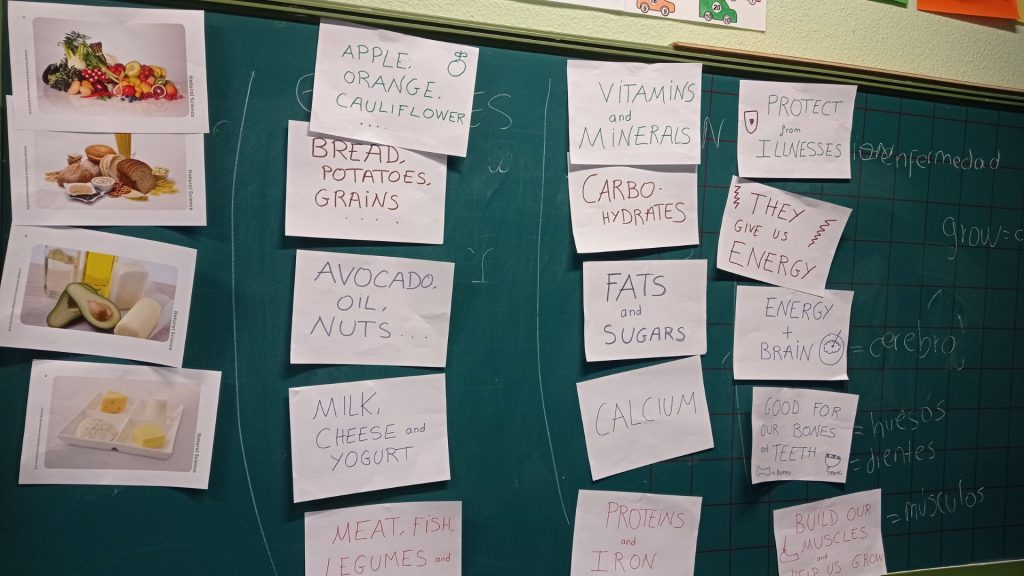 Natural Science
APPLE,
ORANGE,
CAULIFLOWER
....
VITAMINS
and
MINERALS
PROTECT
from
ILLNESSES
enfermedad
Natural Science
BREAD,
POTATOES,
GRAINS
.....
CARBO-
HYDRATES
THEY
GIVE US
ENERGY
grow=
Natural Science
AVOCADO,
OIL,
NUTS...
FATS
and
SUGARS
ENERGY
+
BRAIN
= cerebro
Natural Science
MILK,
CHEESE and
YOGURT
CALCIUM
GOOD FOR
OUR BONES
and TEETH
= BONES
TEETH
= huesos
= dientes
MEAT, FISH,
LEGUMES and
PROTEINS
and
IRON
BUILD OUR
MUSCLES
and
HELP US GROW
= músculos
20